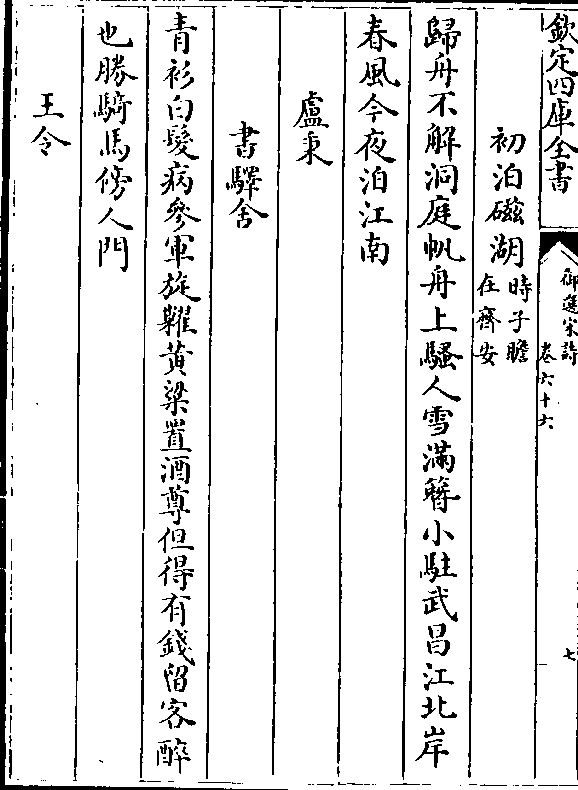 欽定四庫全書
御選宋詩
卷六十六
七
初泊磁湖時子瞻
在齊安
歸舟不解洞庭帆舟上騷人雪滿簪小駐武昌江北岸
春風今夜泊江南
盧秉
書驛舍
青衫白髮病參軍旋糶黃粱置酒尊但得有錢留客醉
也勝騎馬傍人門
王令